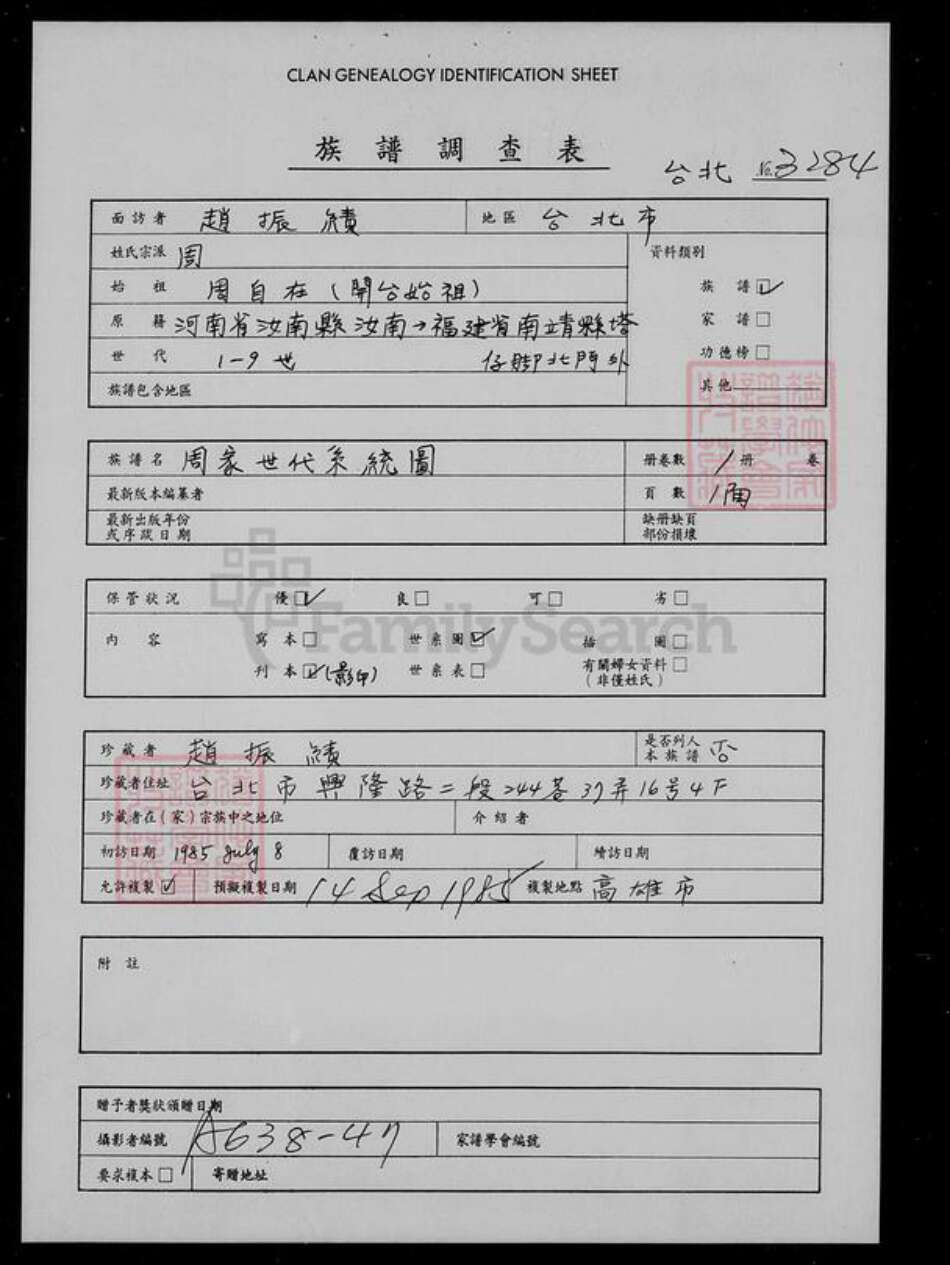 CLAN GENEALOGY IDENTIFICATION SHEET
族譜調查表
台北 No. 3284
面訪者 趙振績 地區 台北市
姓氏宗派 周 資料類別
始祖 周自在(開台始祖) 族譜☑
原籍 河南省汝南縣汝南→福建省南靖縣塔 家譜□
世代 1-9世 仔腳北門外 功德榜□
族譜包含地區 其他
族譜名 周家世代系統圖 册卷數 1册 卷
最新版本編纂者 頁數 1面
最新出版年份 缺册缺頁
或序跋日期 部份損壞
保管狀況 優☑ 良□ 可□ 劣□
內容 寫本□ 世系圖☑ 插圖□
刊本☑(影印) 世系表□ 有關婦女資料□
(非僅姓氏)
珍藏者 趙振績 是否列入本族譜 否
珍藏者住址 台北市興隆路二段244巷37弄16号4F
珍藏者在(家)宗族中之地位 介紹者
初訪日期 1985 July 8 覆訪日期 續訪日期
允許複製☑ 預擬複製日期 14 Sep 1985 複製地點 高雄市
附註
贈予者獎狀頒贈日期
攝影者編號 A638-47 家譜學會編號
要求複本□ 寄贈地址
FamilySearch